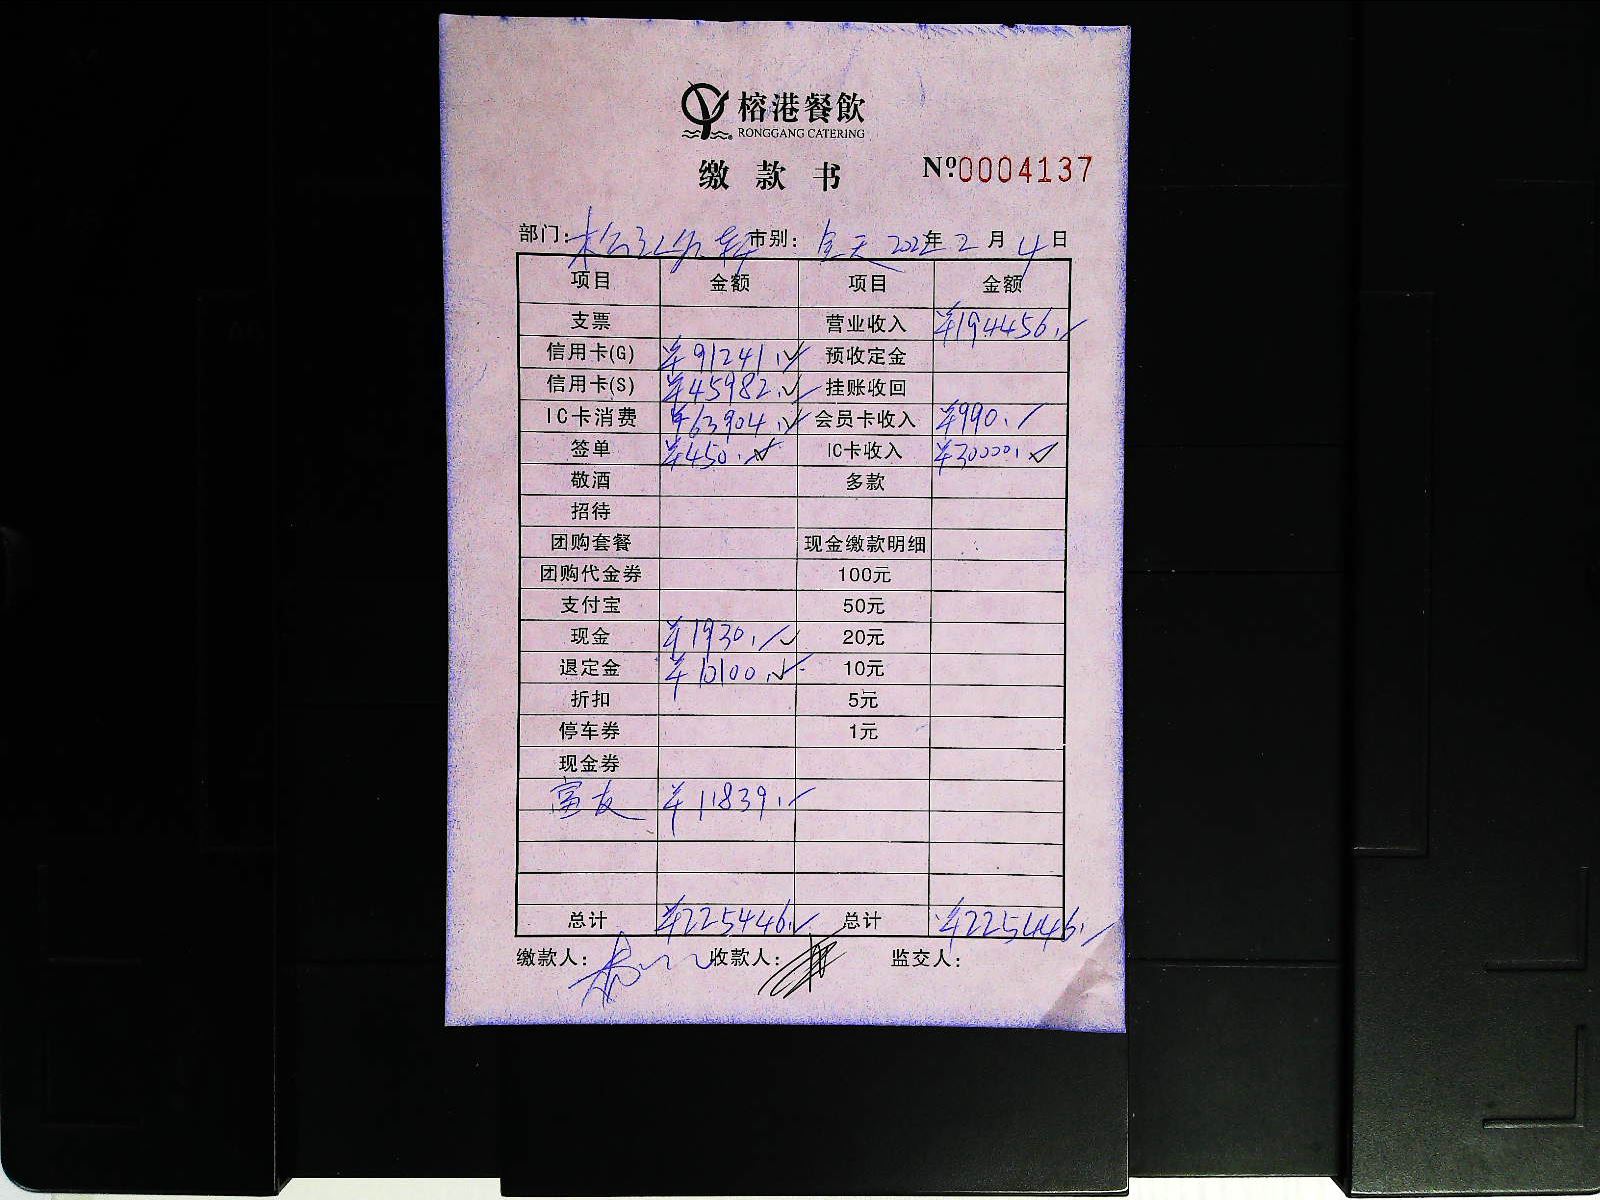 榕港餐飲
RONGGANG CATERING
缴款书 Nº0004137
部门: 市别: 全天 年 2 月 4 日
项目 金额 项目 金额
支票 营业收入 ¥194456.
信用卡(G) ¥91241. 预收定金
信用卡(S) ¥45982. 挂账收回
IC卡消费 ¥63904. 会员卡收入 ¥990.
签单 ¥450. IC卡收入 ¥30000.
敬酒 多款
招待
团购套餐 现金缴款明细
团购代金券 100元
支付宝 50元
现金 ¥1930. 20元
退定金 ¥10100. 10元
折扣 5元
停车券 1元
现金券
富友 ¥11839.
总计 ¥225446. 总计 ¥225446.
缴款人: 收款人: 监交人: